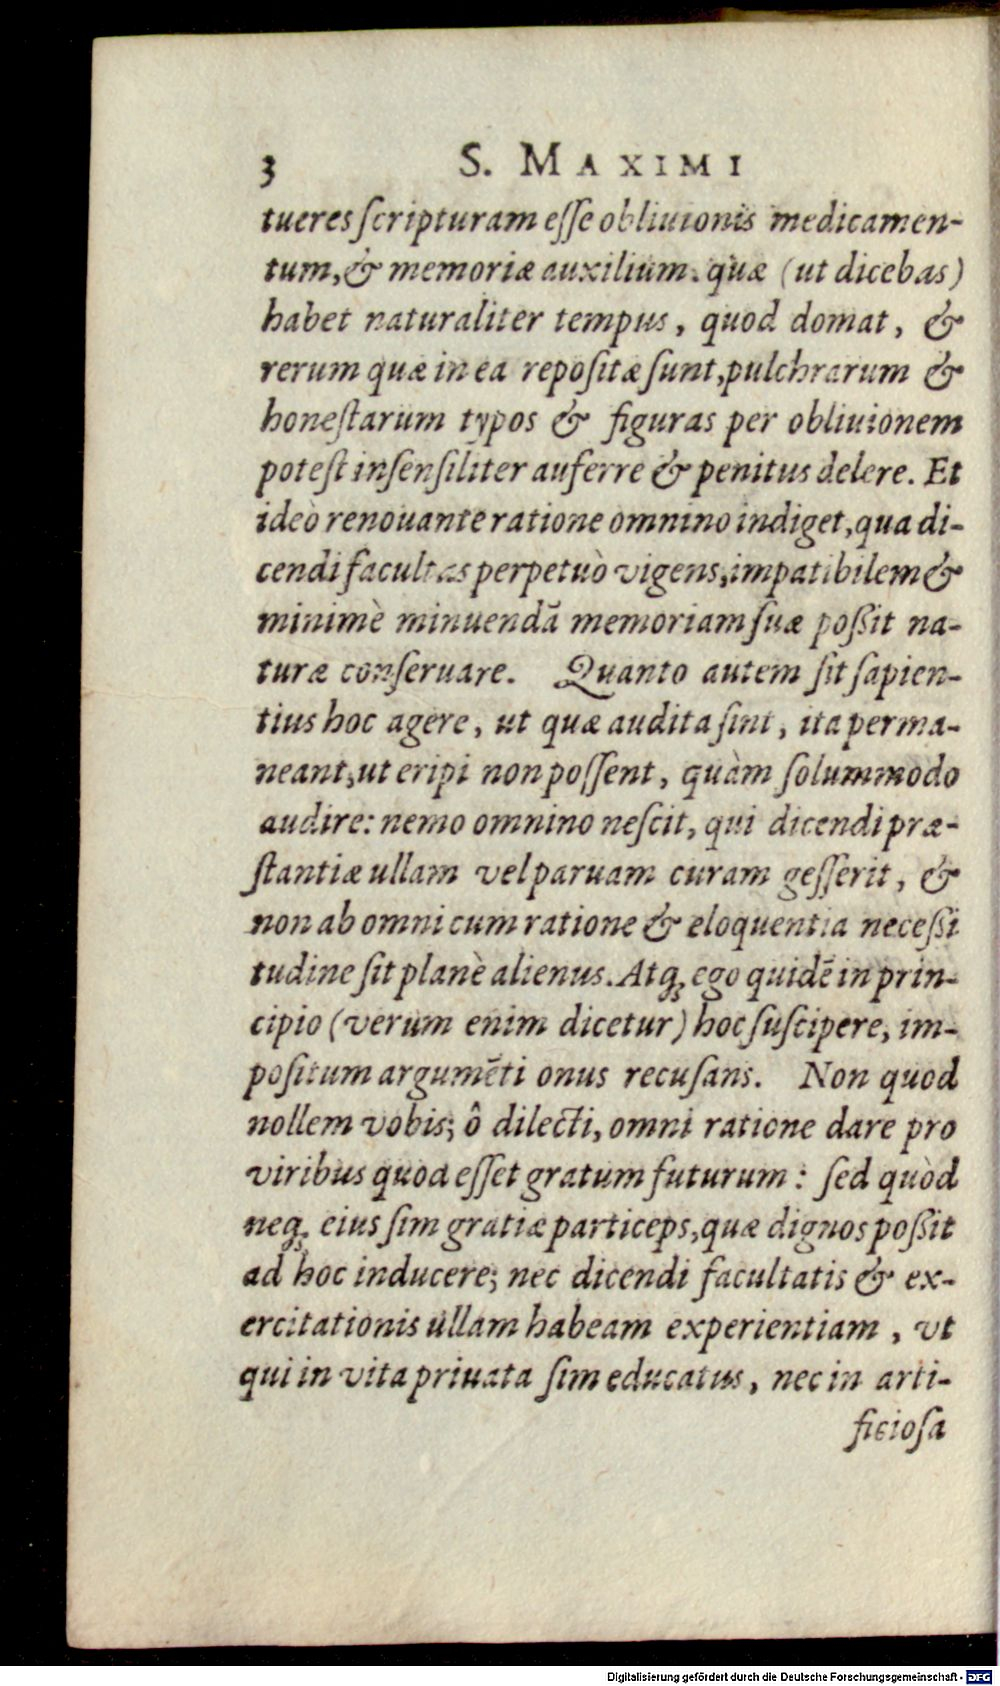 3 S. MAXIMI
tueres ſcripturam eſſe obliuionis medicamen-
tum, & memoriæ auxilium. quæ (ut dicebas)
habet naturaliter tempus, quod domat, &
rerum quæ in ea repoſitæ ſunt, pulchrarum &
honeſtarum typos & figuras per obliuionem
poteſt inſenſiliter auferre & penitus delere. Et
ideò renouante ratione omnino indiget, qua di-
cendi facultas perpetuò vigens, impatibilem &
minimè minuendã memoriam ſuæ poßit na-
turæ conſeruare. Quanto autem ſit ſapien-
tius hoc agere, ut quæ audita ſint, ita perma-
neant, ut eripi non poſſent, quàm ſolummodo
audire: nemo omnino neſcit, qui dicendi præ-
ſtantiæ ullam vel paruam curam geſſerit, &
non ab omni cum ratione & eloquentia neceßi
tudine ſit planè alienus. Atq; ego quidẽ in prin-
cipio (verum enim dicetur) hoc ſuſcipere, im-
poſitum argumẽti onus recuſans. Non quod
nollem vobis; ô dilecti, omni ratione dare pro
viribus quod eſſet gratum futurum: ſed quòd
neq; eius ſim gratiæ particeps, quæ dignos poßit
ad hoc inducere; nec dicendi facultatis & ex-
ercitationis ullam habeam experientiam, vt
qui in vita priuata ſim educatus, nec in arti-
ficioſa
Digitalisierung gefördert durch die Deutsche Forschungsgemeinschaft - DFG